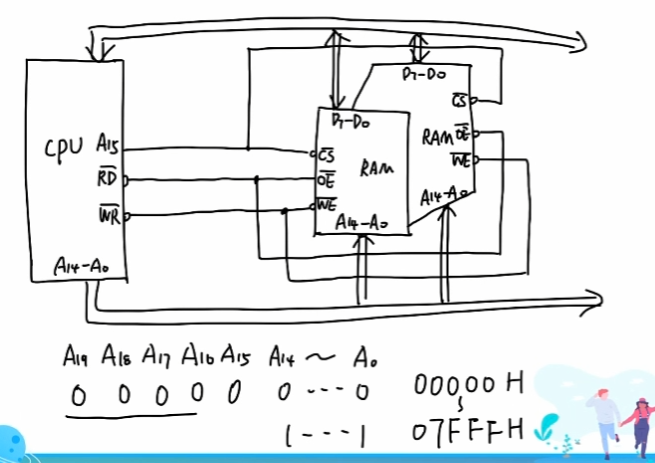 D7-D0
CPU A15
R̅D̅
W̅R̅
A14-A0
D7-D0
C̅S̅
O̅E̅
W̅E̅
RAM
A14-A0
C̅S̅
RAM O̅E̅
W̅E̅
A14-A0
A19 A18 A17 A16 A15 A14 ~ A0
0 0 0 0 0 0 --- 0 00000 H
1 --- 1 07FFFH